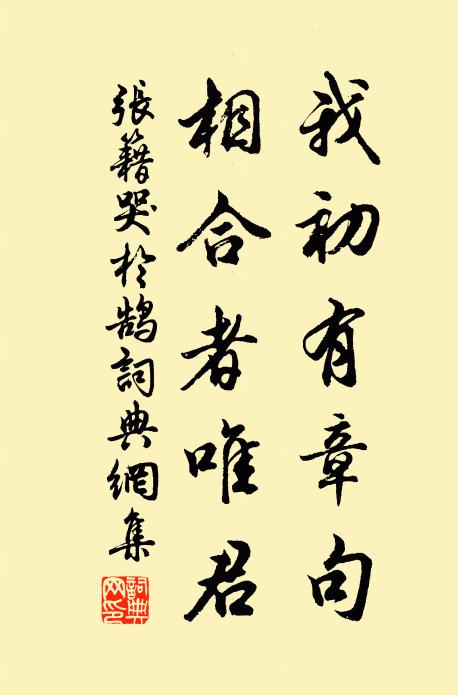 我初有章句
相合者唯君
張籍哭於鵠詞典網集
詞典
网印